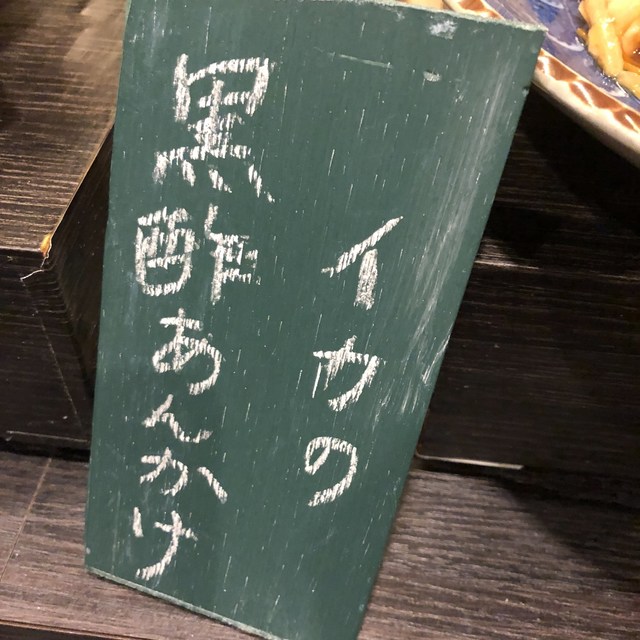 イカの
黒酢あんかけ